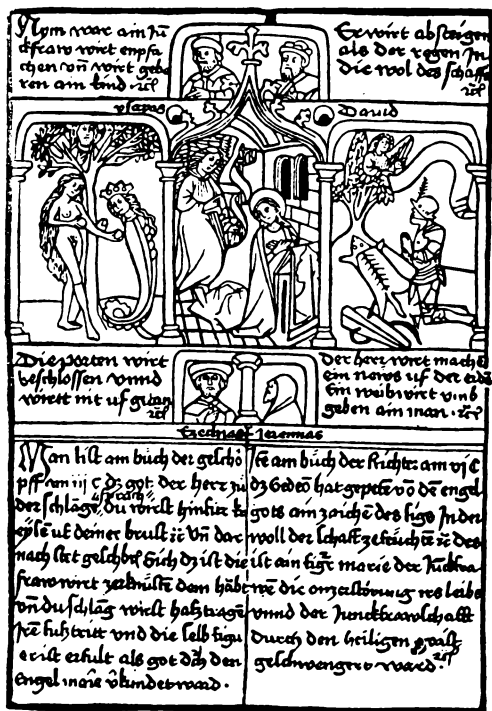 Nym war ain Jū
ckfraw wirt enpfa
chen vn̄ wirt gebe
ren ain kind · rc̄
Er wirt absteigen
als der regen In
die wol des schaffs
rc̄
ysayas
David
Die porten wirt
beschlossen vnnd
wirtt nit uf getan
rc̄
der herr wirt machen
ein news uf der erdē
Ein weib wirt vmb
geben ain man · rc̄
Ezechiel Jeremias
Man list am buch der geschö
pff am iij c dz got der herr zu
der schlāgē sprach du wirst hinfür
deiner brust rc̄ vn̄ dar
nach stet geschribē Sich dz ist die
fraw wirt zerknüsten dein habt
vn̄ du schlāg wirst
Irē fuhtritt vnd die selb figu
er ist erfult als got dch den
Engel marie v̄kundet ward ·
Itē am buch der Richter am vj C
dz Gedeō hat gepetē vō dē engel
gots ain zaichē des sigs In der
woll der schaff zefüchtē rc̄ des
ist ain figr̄ marie der Juckfra
wē die on zerstörung irs leibs
vnnd der Junckfrawschafft
durch den heiligen gaist
geschwengert ward · rc̄